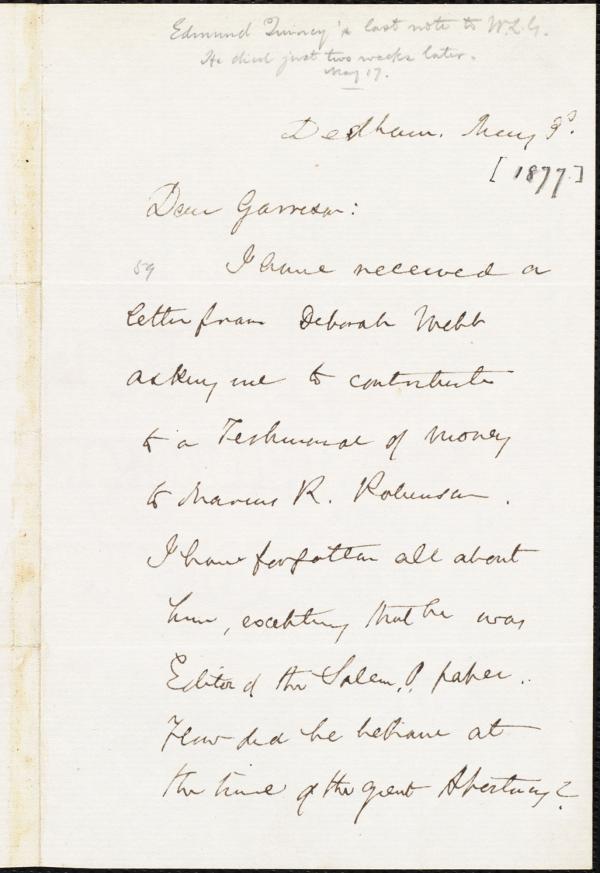 Edmund Quincy's last note to W.L.G.
He died just two weeks later.
May 17.
Dedham. May 3d.
[1877.]
Dear Garrison:
59 I have received a
letter from Deborah Webb
asking me to contribute
to a Testimonial of money
to Marius R. Robinson.
I have forgotten all about
him, excepting that he was
Editor of the Salem, O. paper.
How did he behave at
the time of the great Apostacy?